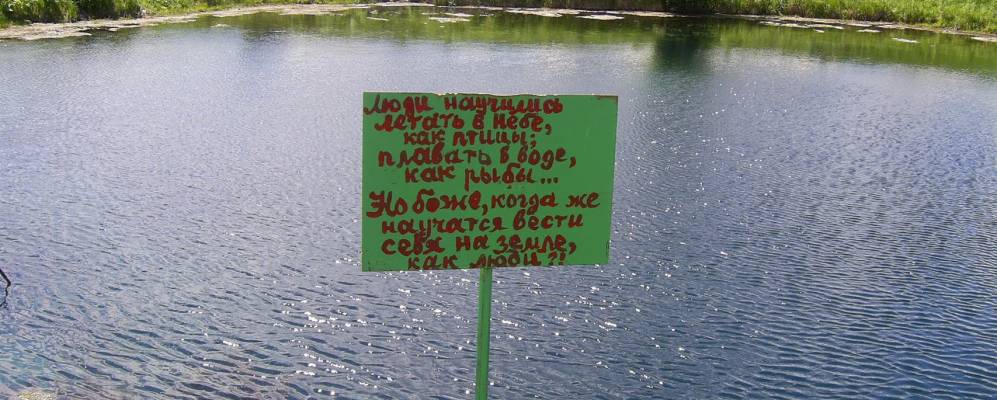 Люди научились
летать в небе,
как птицы;
плавать в воде,
как рыбы...
Но боже, когда же
научатся вести
себя на земле,
как люди?!